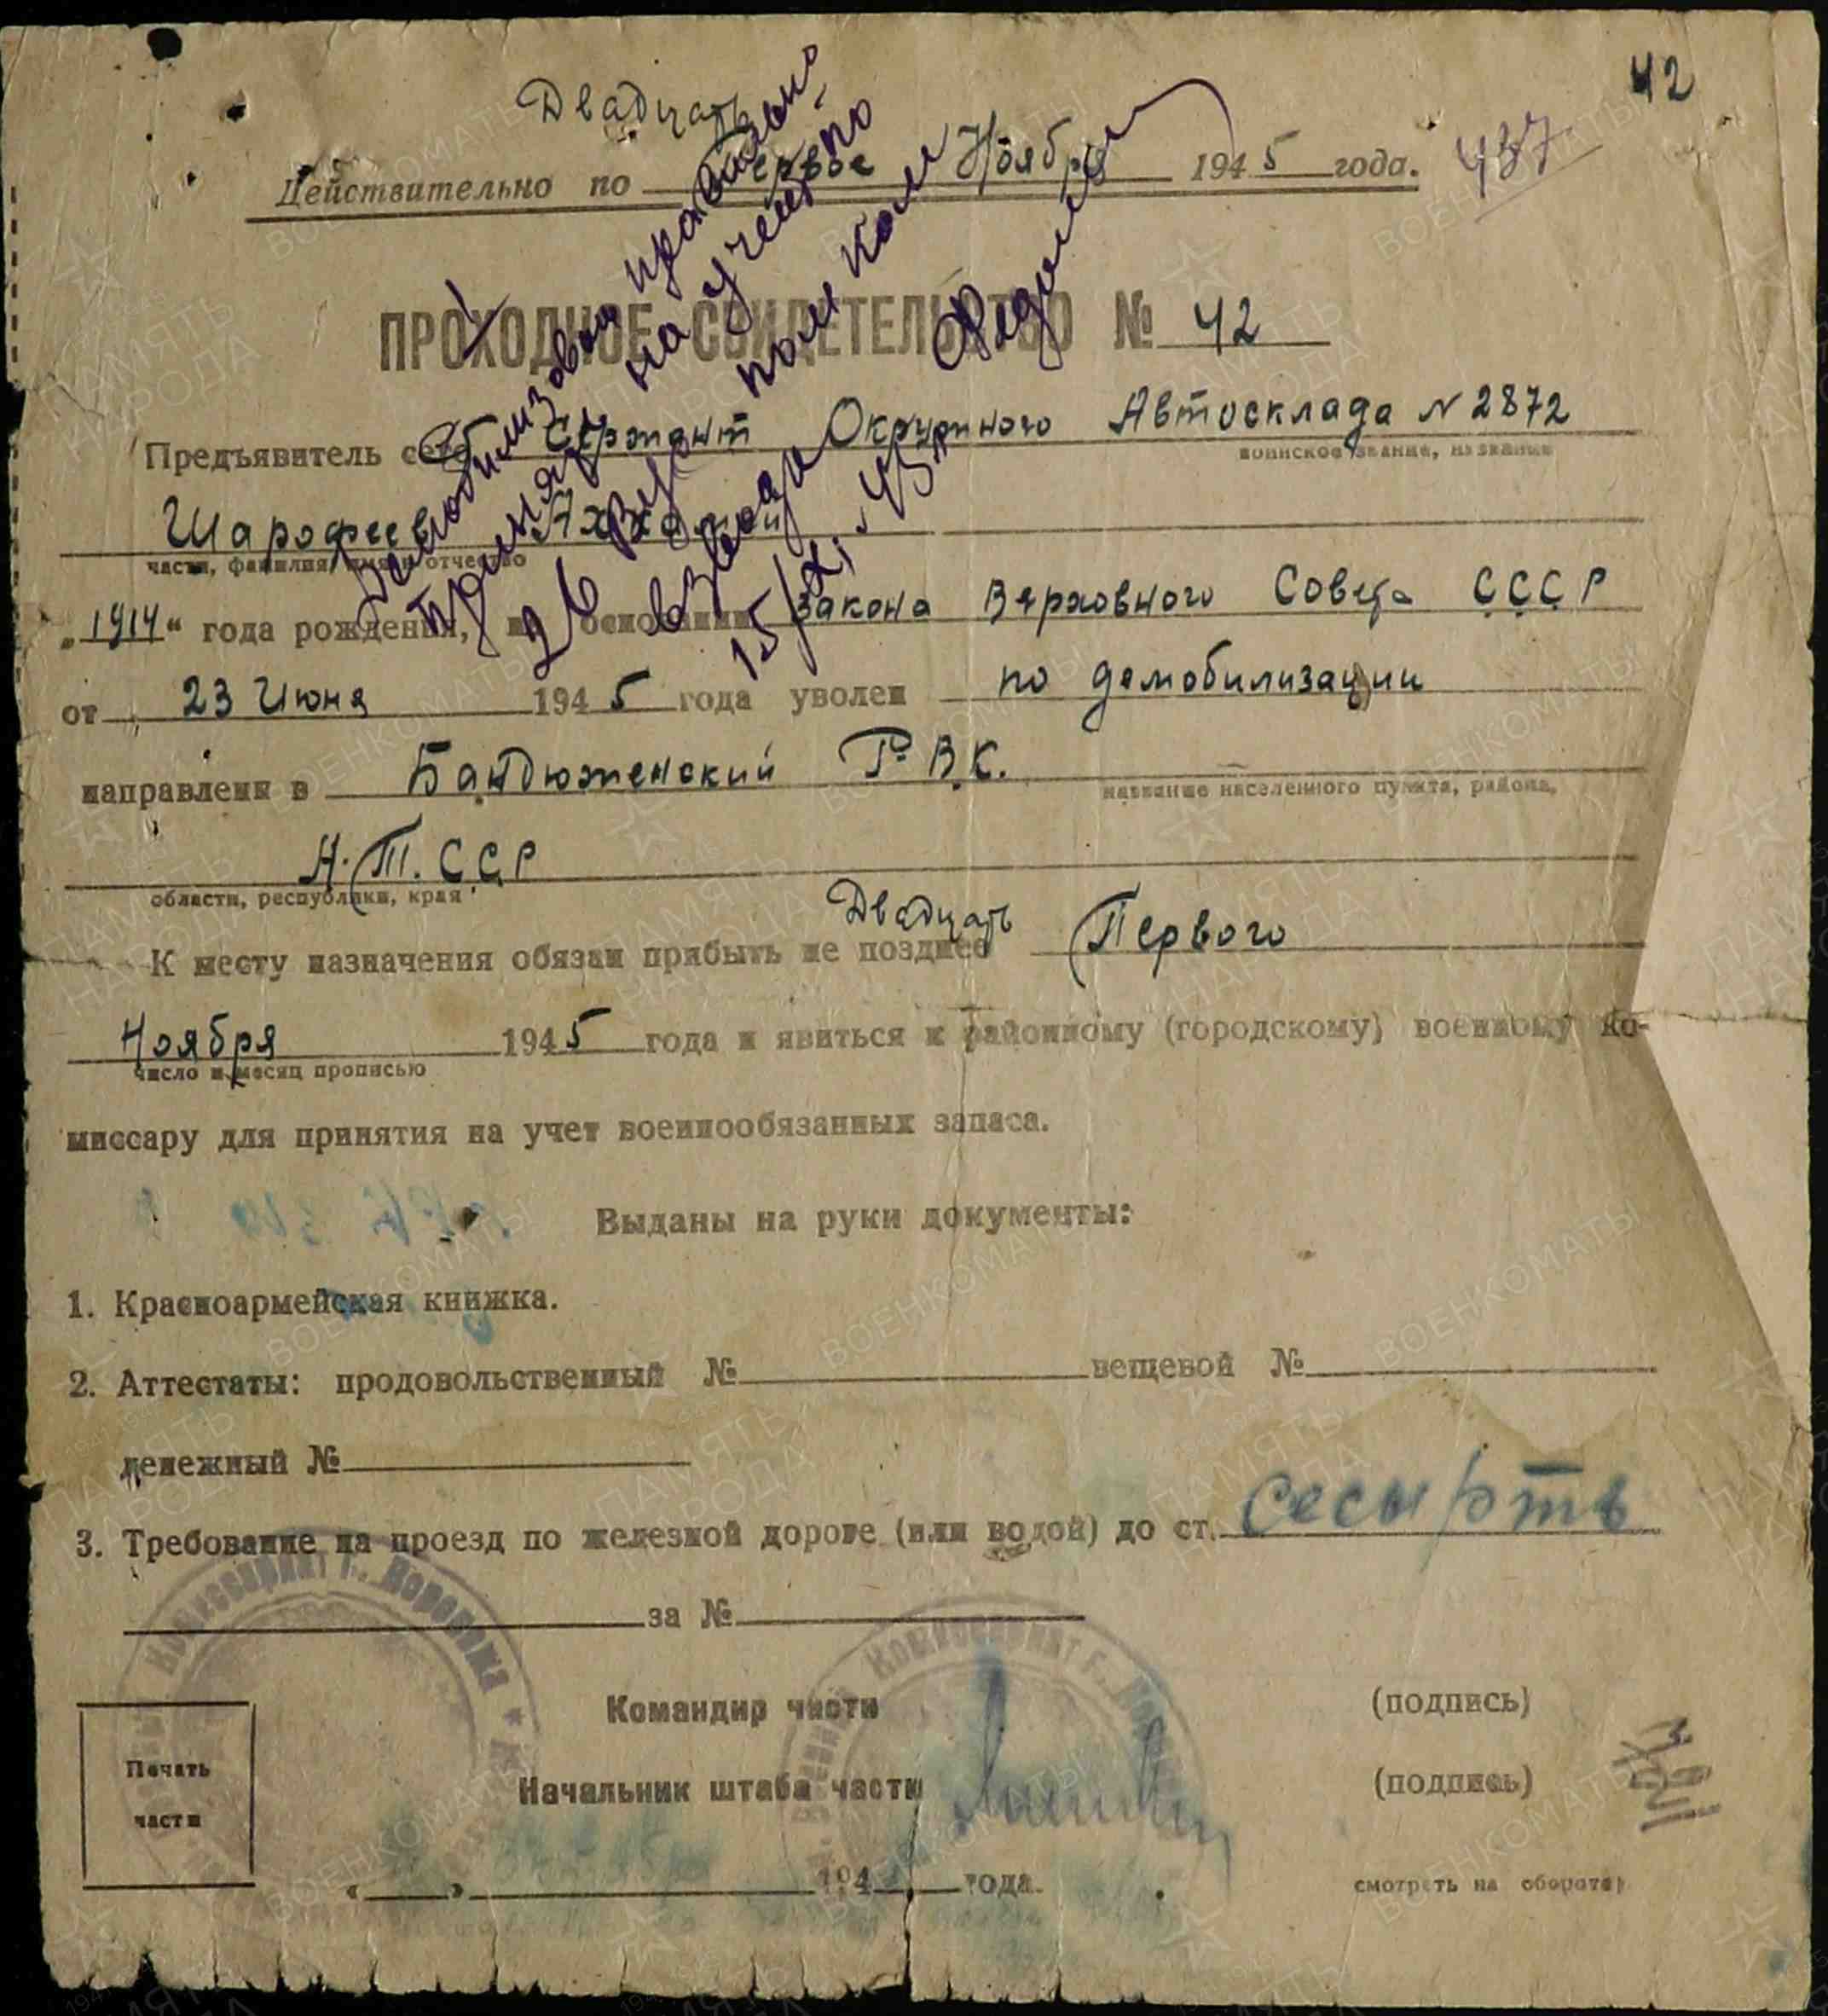 42
Двадцать
Действительно по Первое Ноября 1945 года.
437
ПРОХОДНОЕ СВИДЕТЕЛЬСТВО № 42
Демобилизован правильно
принят на учет по
взвода
15/XI-45г
Предъявитель сего Сержант Окружного Автосклада №2872
воинское звание, название
Шарофеев
части, фамилия, имя и отчество
„1914“ года рождения, на основании Закона Верховного Совета СССР
от 23 Июня 1945 года уволен по демобилизации
направлен в Бондюженский Р.В.К.
название населенного пункта, района,
А.Т.ССР
области, республики, края
К месту назначения обязан прибыть не позднее Двадцать Первого
Ноября 1945 года и явиться к районному (городскому) военному ко-
число и месяц прописью
миссару для принятия на учет военнообязанных запаса.
Выданы на руки документы:
1. Красноармейская книжка.
2. Аттестаты: продовольственный № вещевой №
денежный №
3. Требование на проезд по железной дороге (или водой) до ст. Сесырть
за №
Комиссариат г. Воронежа
Комиссариат г.
Командир части (подпись)
Начальник штаба части (подпись)
Печать
части
„ “ 194 года.
смотреть на обороте
ПАМЯТЬ НАРОДА
ВОЕНКОМАТЫ